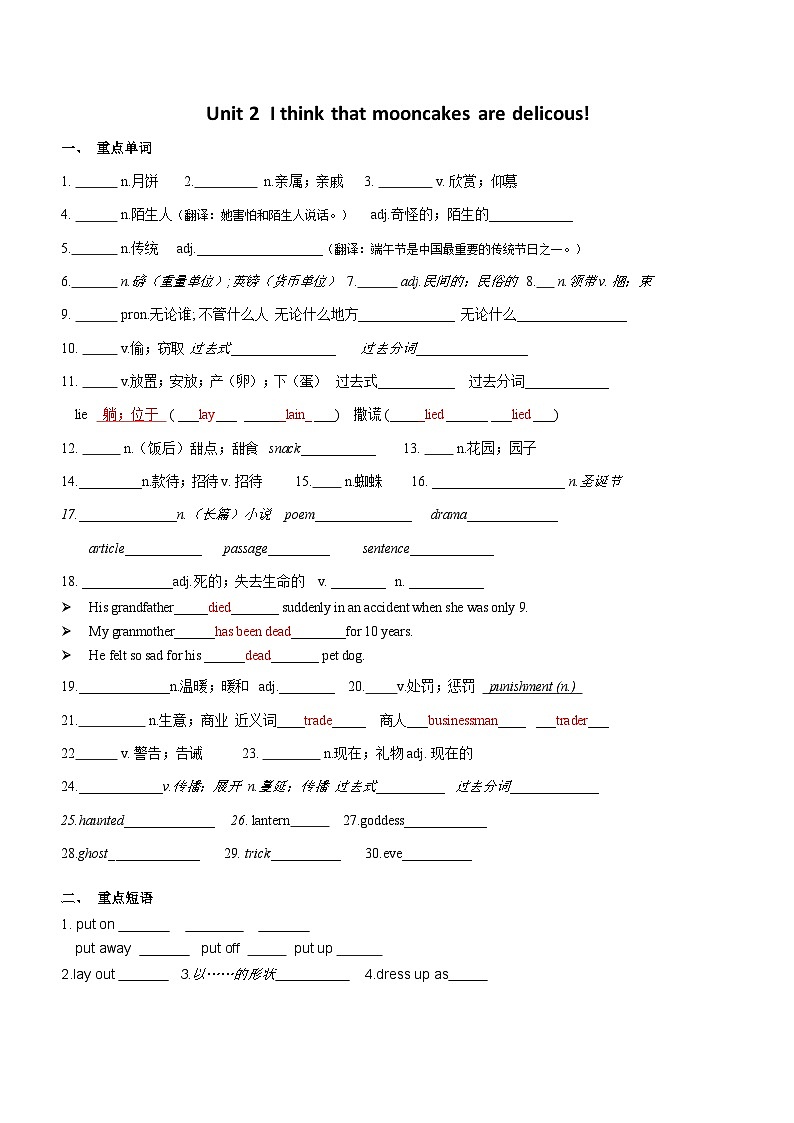 Unit 2 I think that mooncakes are delicous!
一、 重点单词
1. ______ n.月饼 2._________ n.亲属；亲戚 3. ________ v. 欣赏；仰慕
4. ______ n.陌生人（翻译：她害怕和陌生人说话。） adj.奇怪的；陌生的____________
5.______ n.传统 adj.__________________（翻译：端午节是中国最重要的传统节日之一。）
6.______ n.磅（重量单位）；英镑（货币单位） 7.______ adj.民间的；民俗的 8.___ n.领带 v. 捆；束
9. ______ pron.无论谁; 不管什么人 无论什么地方______________ 无论什么________________
10. _____ v.偷；窃取 过去式_______________ 过去分词________________
11. _____ v.放置；安放；产（卵）；下（蛋） 过去式___________ 过去分词____________
lie _躺；位于_ ( ___lay___ ______lain____) 撒谎 (_____lied______ ___lied___)
12. _____ n.（饭后）甜点；甜食 snack___________ 13. ____ n.花园；园子
14._________n.款待；招待 v. 招待 15.____ n.蜘蛛 16. ___________________ n.圣诞节
17.______________n.（长篇）小说 poem______________ drama_____________
article___________ passage_________ sentence____________
18. _____________adj.死的；失去生命的 v. ________ n. ___________
➢ His grandfather_____died_______ suddenly in an accident when she was only 9.
➢ My granmother______has been dead________for 10 years.
➢ He felt so sad for his ______dead_______ pet dog.
19._____________n.温暖；暖和 adj.________ 20._____v.处罚；惩罚 _punishment (n.)_
21.__________ n.生意；商业 近义词____trade_____ 商人___businessman____ ___trader___
22______ v. 警告；告诫 23. ________ n.现在；礼物 adj. 现在的
24.____________v.传播；展开 n.蔓延；传播 过去式__________ 过去分词_____________
25.haunted_____________ 26. lantern______ 27.goddess____________
28.ghost______________ 29. trick__________ 30.eve__________
二、 重点短语
1. put on _______ ________ _______
put away _______ put off _____ put up ______
2.lay out _______ 3.以……的形状___________ 4.dress up as_____